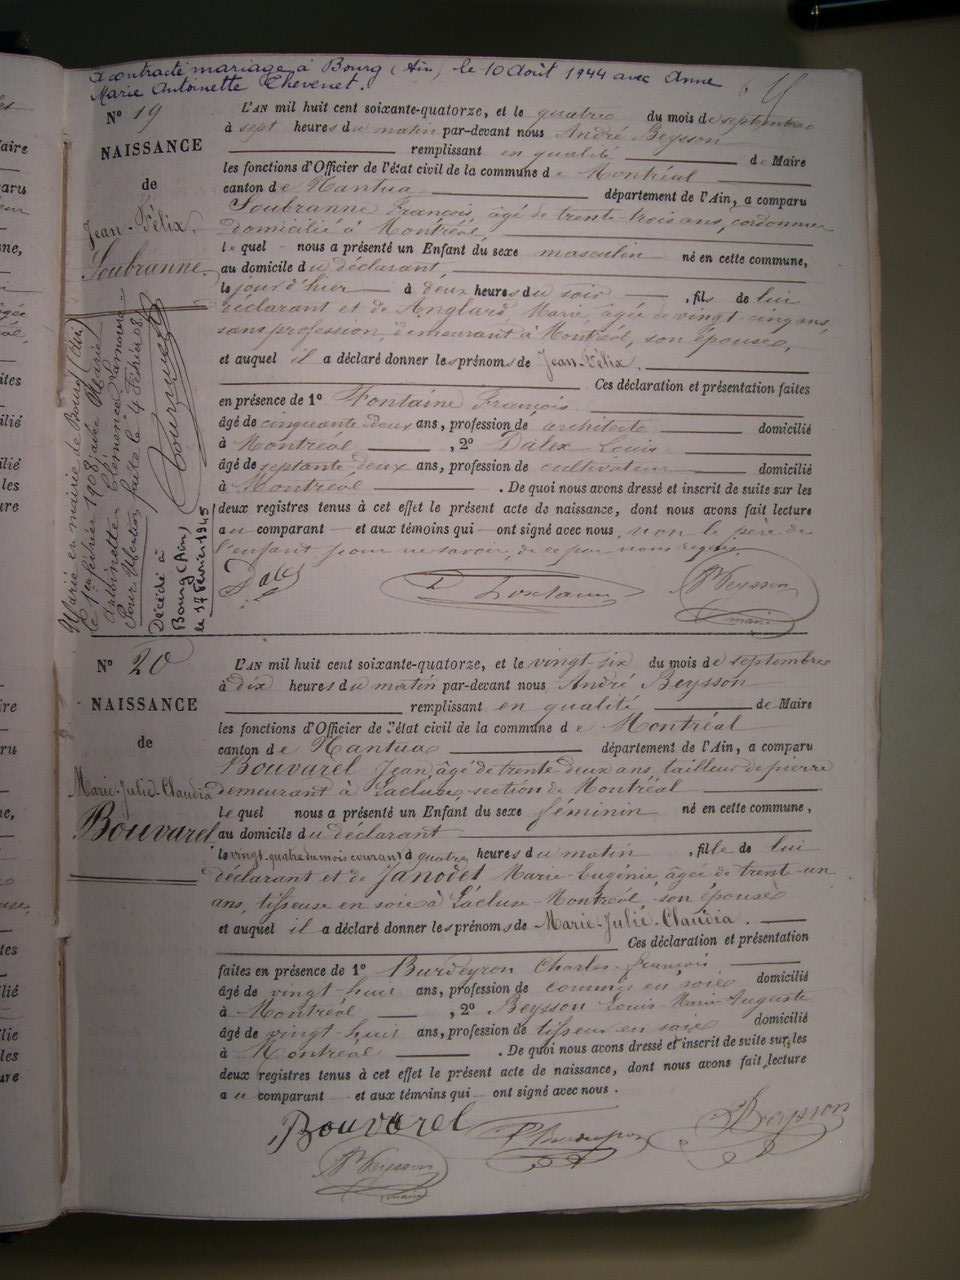 A contracté mariage à Bourg (Ain) le 10 Août 1944 avec Anne
Marie Antoinette Thevenet.
N° 19
NAISSANCE
de
Jean-Félix
Soubranne
Marié en mairie de Bourg (Ain)
le 1er février 1908 avec Marie
Antoinette Clémence
Pour Mention faite le 4 février 08
Décédé à
Bourg (Ain)
le 17 Février 1945
L'AN mil huit cent soixante-quatorze, et le quatre du mois de septembre
à sept heures du matin par-devant nous André Beysson
remplissant en qualité de Maire
les fonctions d'Officier de l'état civil de la commune de Montréal
canton de Nantua département de l'Ain, a comparu
Soubranne François, âgé de trente-trois ans, cordonnier
domicilié à Montréal,
lequel nous a présenté un Enfant du sexe masculin né en cette commune,
au domicile du déclarant,
le jour d'hier à deux heures du soir, fils de lui
déclarant et de Anglard Marie, âgée de vingt-cinq ans,
sans profession, demeurant à Montréal, son épouse,
et auquel il a déclaré donner les prénoms de Jean-Félix.
Ces déclaration et présentation faites
en présence de 1° Fontaine François
âgé de cinquante-deux ans, profession de architecte domicilié
à Montréal, 2° Dalex Louis
âgé de septante-deux ans, profession de cultivateur domicilié
à Montréal. De quoi nous avons dressé et inscrit de suite sur les
deux registres tenus à cet effet le présent acte de naissance, dont nous avons fait lecture
au comparant et aux témoins qui ont signé avec nous, non le père de
l'enfant pour ne savoir, de ce par nous requis.
Dalex Fontaine Beysson
maire
N° 20
NAISSANCE
de
Marie-Julie-Claudia
Bouvarel
L'AN mil huit cent soixante-quatorze, et le vingt-six du mois de septembre
à dix heures du matin par-devant nous André Beysson
remplissant en qualité de Maire
les fonctions d'Officier de l'état civil de la commune de Montréal
canton de Nantua département de l'Ain, a comparu
Bouvarel Jean, âgé de trente-deux ans, tailleur de pierre
demeurant à Lacluse, section de Montréal
lequel nous a présenté un Enfant du sexe féminin né en cette commune,
au domicile du déclarant
le vingt-quatre du mois courant à quatre heures du matin, fille de lui
déclarant et de Janodet Marie-Eugénie, âgée de trente-un
ans, tisseuse en soie à Lacluse-Montréal, son épouse
et auquel il a déclaré donner les prénoms de Marie-Julie-Claudia.
Ces déclaration et présentation
faites en présence de 1° Burdeyron Charles-François
âgé de vingt-huit ans, profession de commis en soie domicilié
à Montréal, 2° Beysson Louis Marie Auguste
âgé de vingt-huit ans, profession de tisseur en soie domicilié
à Montréal. De quoi nous avons dressé et inscrit de suite sur les
deux registres tenus à cet effet le présent acte de naissance, dont nous avons fait lecture
au comparant et aux témoins qui ont signé avec nous.
Bouvarel Burdeyron Beysson
Beysson
maire